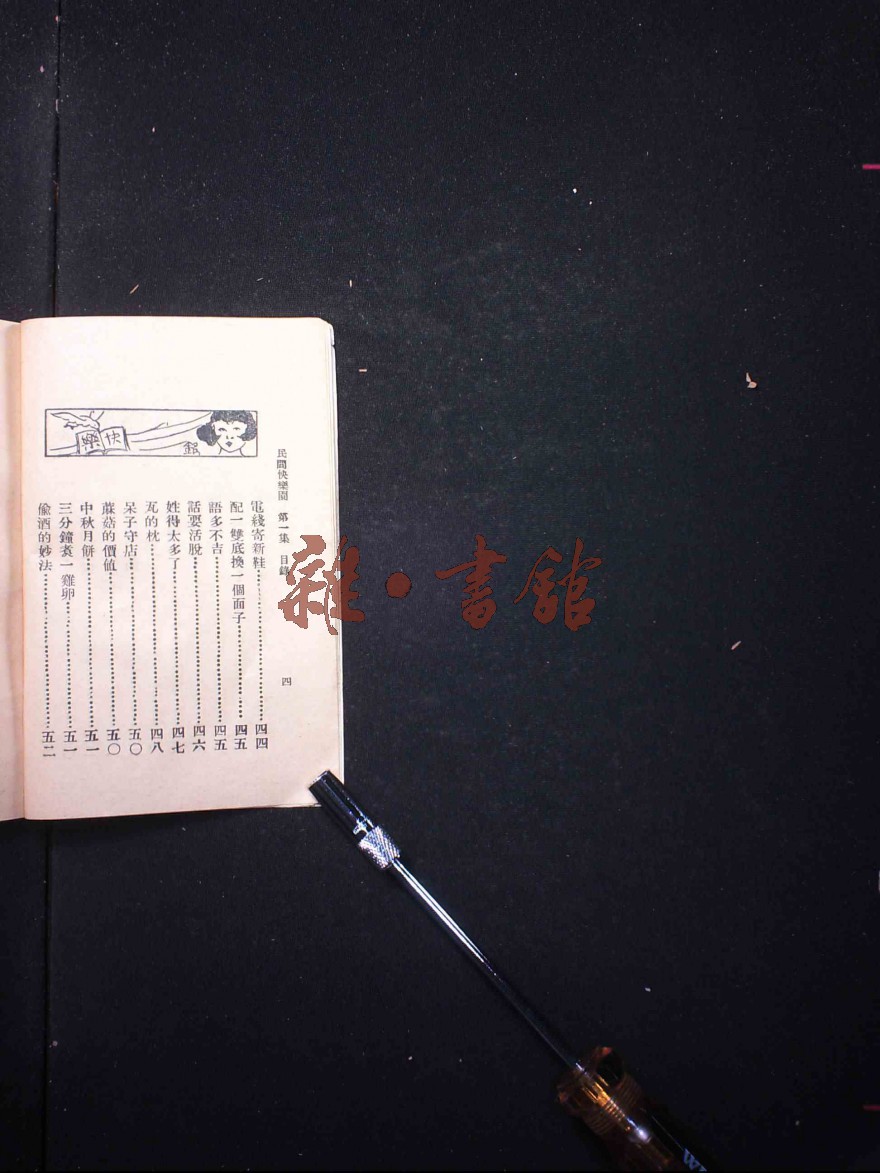 民間快樂園　第一集　目錄　四
電綫寄新鞋………四四
配一雙底換一個面子………四五
語多不吉………四五
話要活脫………四六
姓得太多了………四七
瓦的枕………四八
呆子守店………五〇
蔴菇的價值………五〇
中秋月餅………五一
三分鐘煑一雞卵………五一
偸酒的妙法………五二
快樂
雜·書館